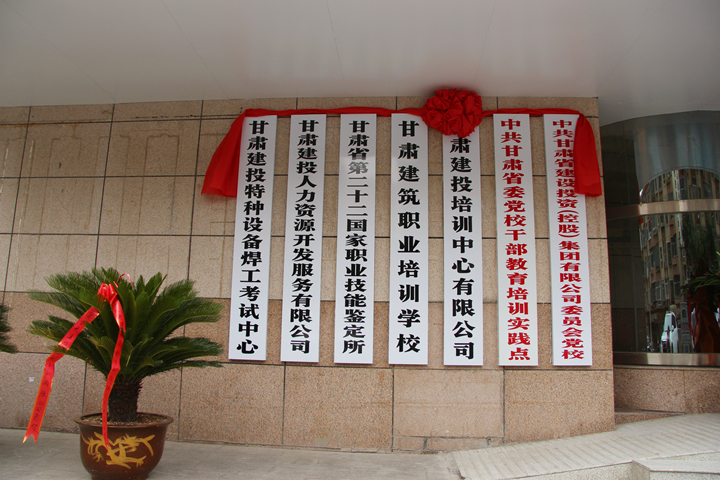 甘肃建投特种设备焊工考试中心
甘肃建投人力资源开发服务有限公司
甘肃省第二十二国家职业技能鉴定所
甘肃建筑职业培训学校
肃建投培训中心有限公司
中共甘肃省委党校干部教育培训实践点
中共甘肃省建设投资(控股)集团有限公司委员会党校